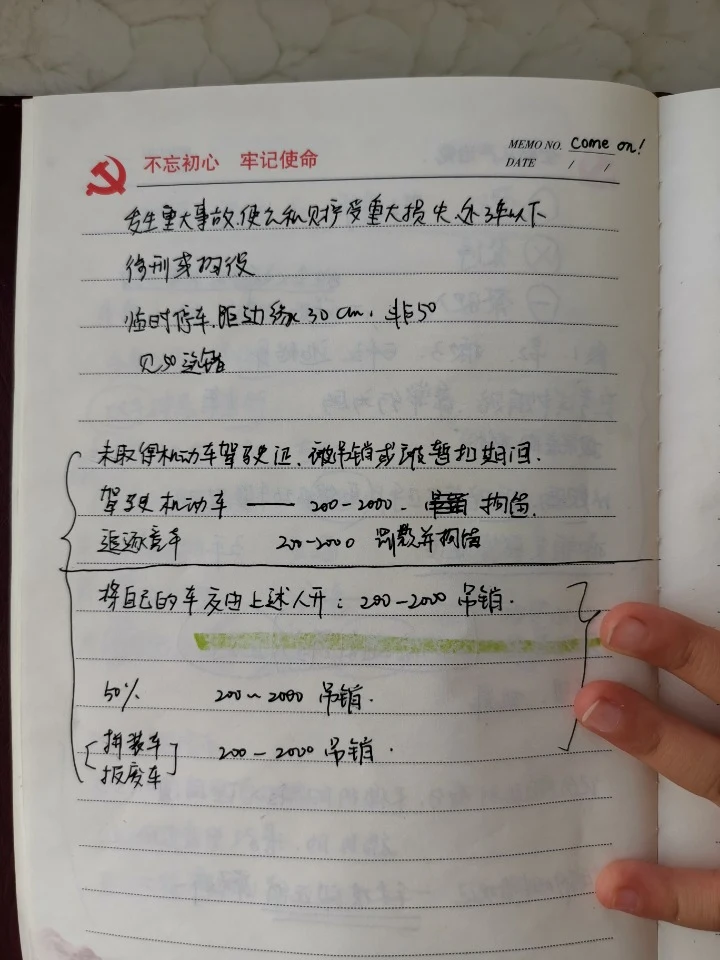 不忘初心 牢记使命
MEMO NO. Come on!
DATE / /
发生重大事故,使公私财产受重大损失,处3年以下
徒刑或拘役
临时停车,距边缘30cm,非50
见50选错
未取得机动车驾驶证、被吊销或被暂扣期间.
驾驶机动车 —— 200-2000. 拘留.
追逐竞车 200-2000 罚款并拘留
将自己的车交由上述人开: 200-2000 吊销.
50% 200~2000 吊销.
[拼装车
报废车] 200-2000 吊销.